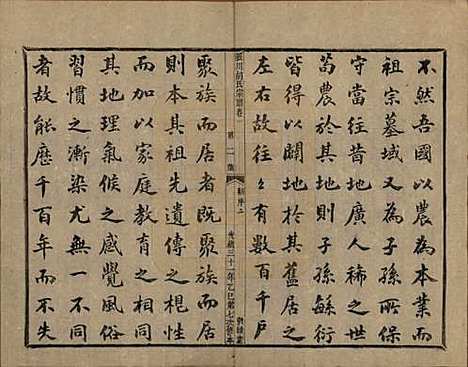 不然吾國以農為本業而
祖宗墓域又為子孫所保
守當往昔地廣人稀之世
苟農於其地子孫蘇衍
皆得以闢地於其舊居之
左右故往々有數百千戶
第二
序二
光緒三十一年乙巳第七次修本
聚族而居者既聚族而居
則本其祖先遺傳之根性
而加以家庭教育之相同
其地理氣候之感覺風俗
習慣之漸染尤無一不同
者故能歷千百年而不失